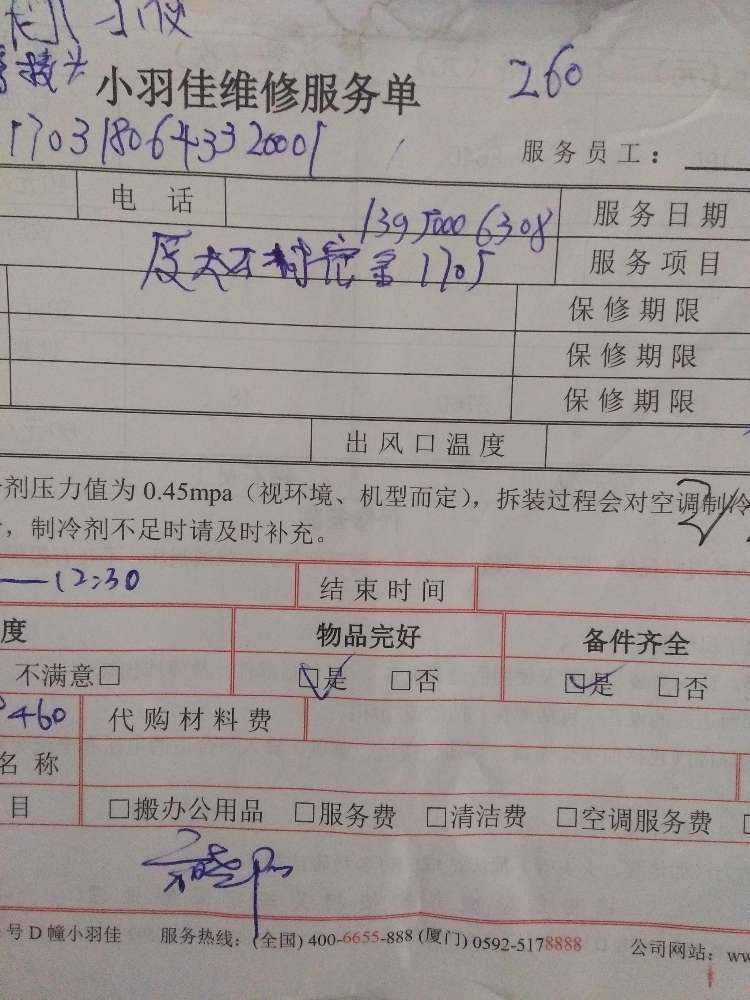 接头
小羽佳维修服务单 260
1703180643320001 服务员工：
电话 13950006308 服务日期
1705 服务项目
保修期限
保修期限
保修期限
出风口温度
剂压力值为 0.45mpa（视环境、机型而定），拆装过程会对空调制冷
，制冷剂不足时请及时补充。
12:30 结束时间
度 物品完好 备件齐全
不满意□ □是 □否 □是 □否
460 代购材料费
名称
目 □搬办公用品 □服务费 □清洁费 □空调服务费
号 D 幢小羽佳 服务热线：(全国) 400-6655-888 (厦门) 0592-5178888 公司网站：ww